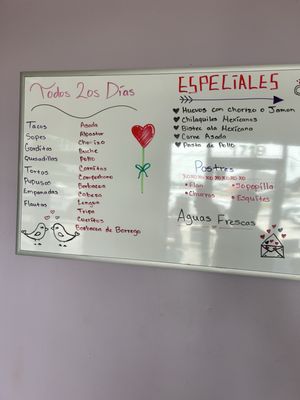 Todos Los Días
Tacos
Sopes
Gorditas
Quesadillas
Tortas
Pupusas
Empanadas
Flautas
Asada
Alpastor
Chorizo
Buche
Pollo
Carnitas
Campechano
Barbacoa
Cabeza
Lengua
Tripa
Cueritos
Barbacoa de Borrego
ESPECIALES
Huevos con chorizo o Jamon
Chilaquiles Mexicanos
Bistec ala Mexicana
Carne Asada
Pasta de Pollo
Postres
Flan
Sopapilla
Churros
Esquites
Aguas Frescas